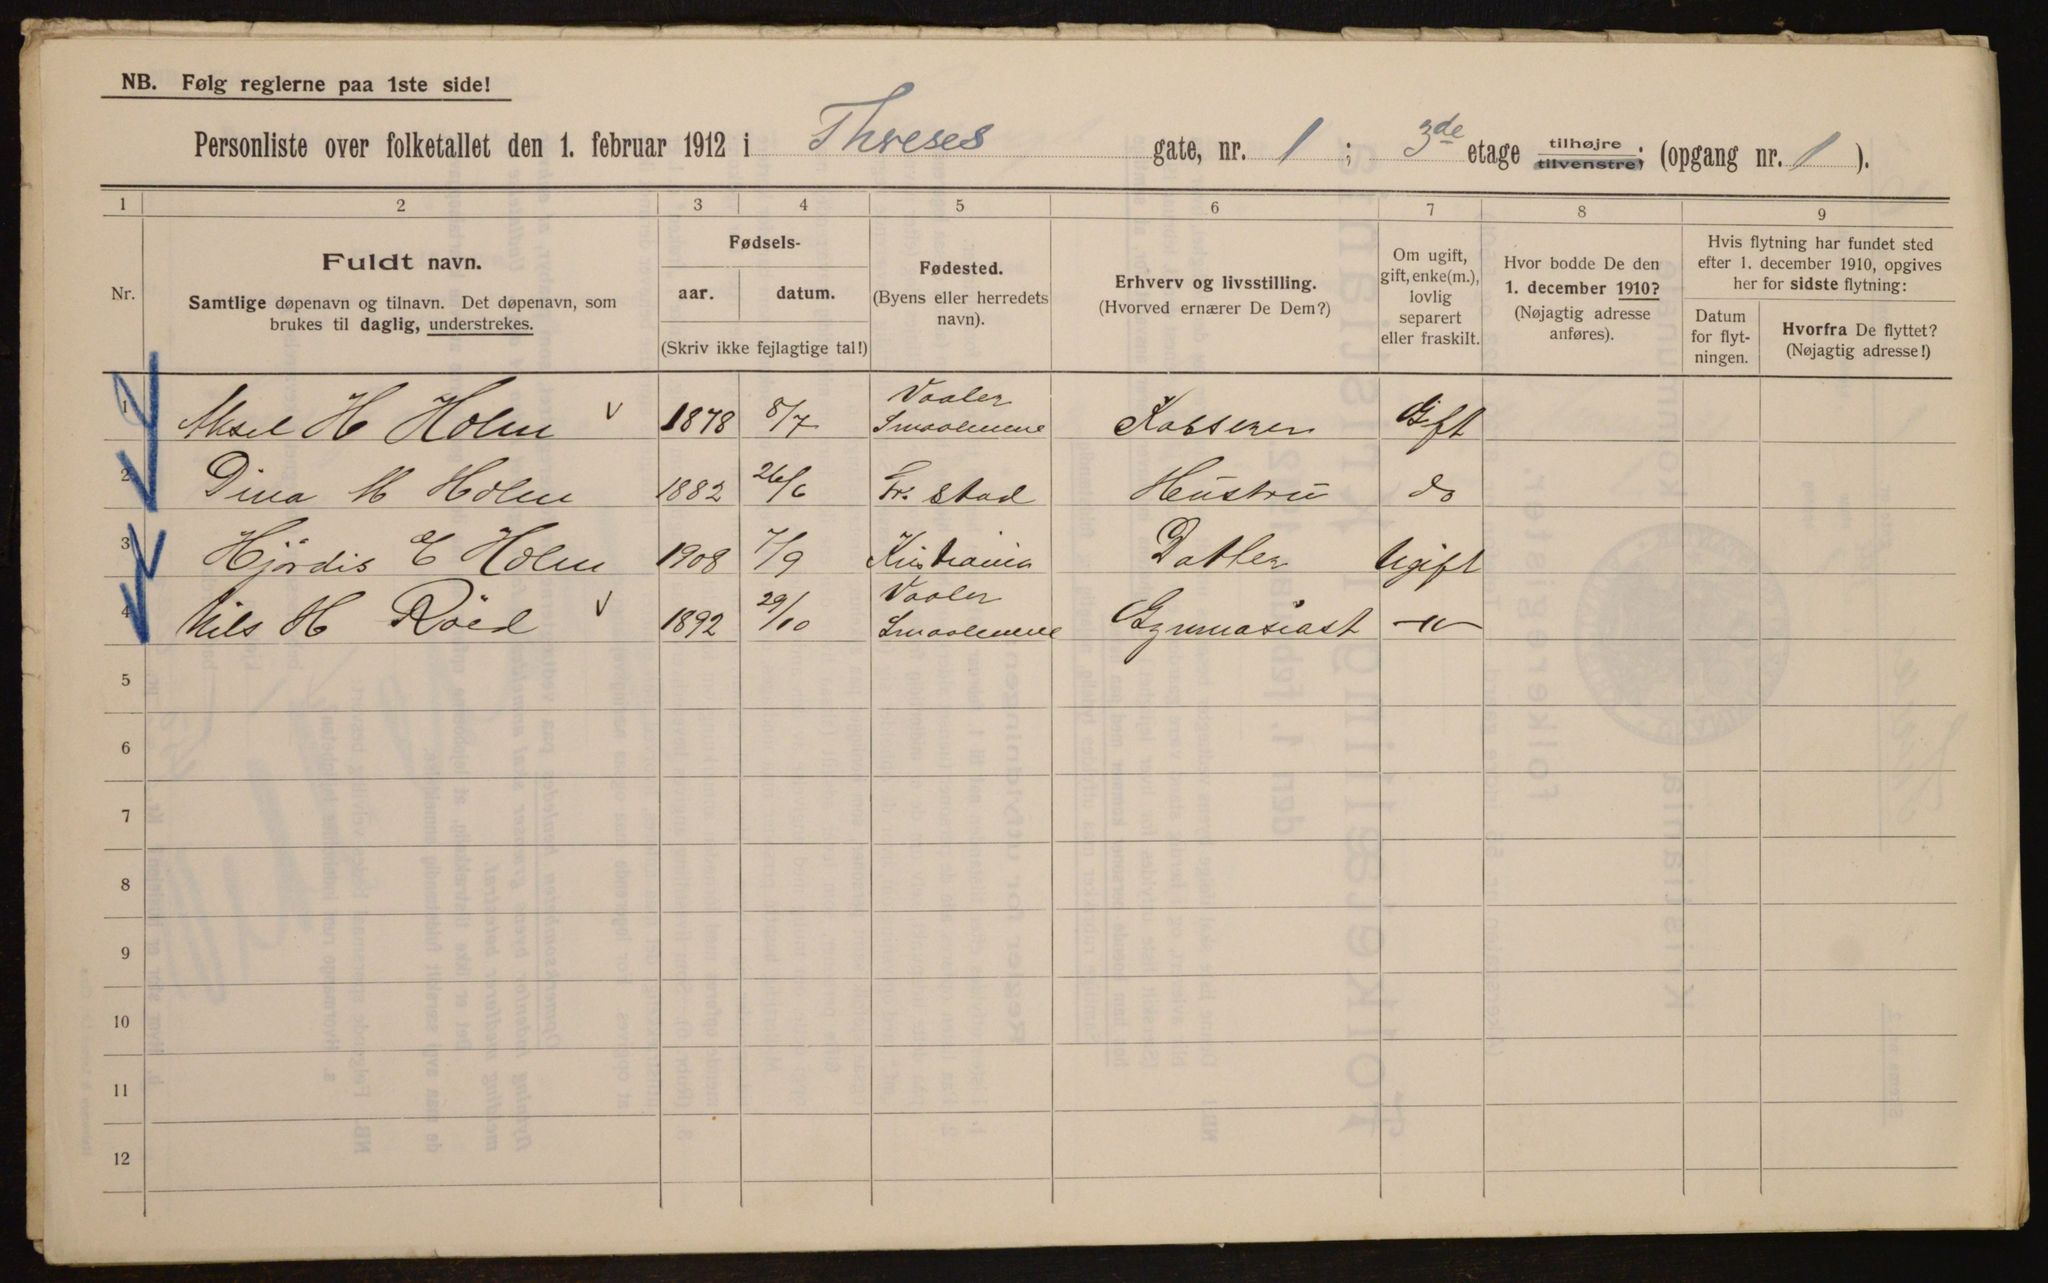 NB. Følg reglerne paa 1ste side!
Personliste over folketallet den 1. februar 1912 i Threses gate, nr. 1 ; 3de etage tilhøjre tilvenstre; (opgang nr. 1 ).
1 2 3 4 5 6 7 8 9
Nr.
Fuldt navn.
Samtlige døpenavn og tilnavn. Det døpenavn, som
brukes til daglig, understrekes.
Fødsels-
aar. datum.
(Skriv ikke fejlagtige tal!)
Fødested.
(Byens eller herredets
navn).
Erhverv og livsstilling.
(Hvorved ernærer De Dem?)
Om ugift,
gift, enke(m.),
lovlig
separert
eller fraskilt.
Hvor bodde De den
1. december 1910?
(Nøjagtig adresse
anføres).
Hvis flytning har fundet sted
efter 1. december 1910, opgives
her for sidste flytning:
Datum
for flyt-
ningen.
Hvorfra De flyttet?
(Nøjagtig adresse!)
1 Aksel H Holm v 1878 8/7 Vaaler Smaalenene Kasserer Gift
2 Dina M Holm 1882 26/6 Fr. stad Hustru do
3 Hjördis E Holm 1908 7/9 Kristiania Datter Ugift
4 Nils H Röed v 1892 29/10 Vaaler Smaalenene Gymnasiast -"-
5
6
7
8
9
10
11
12